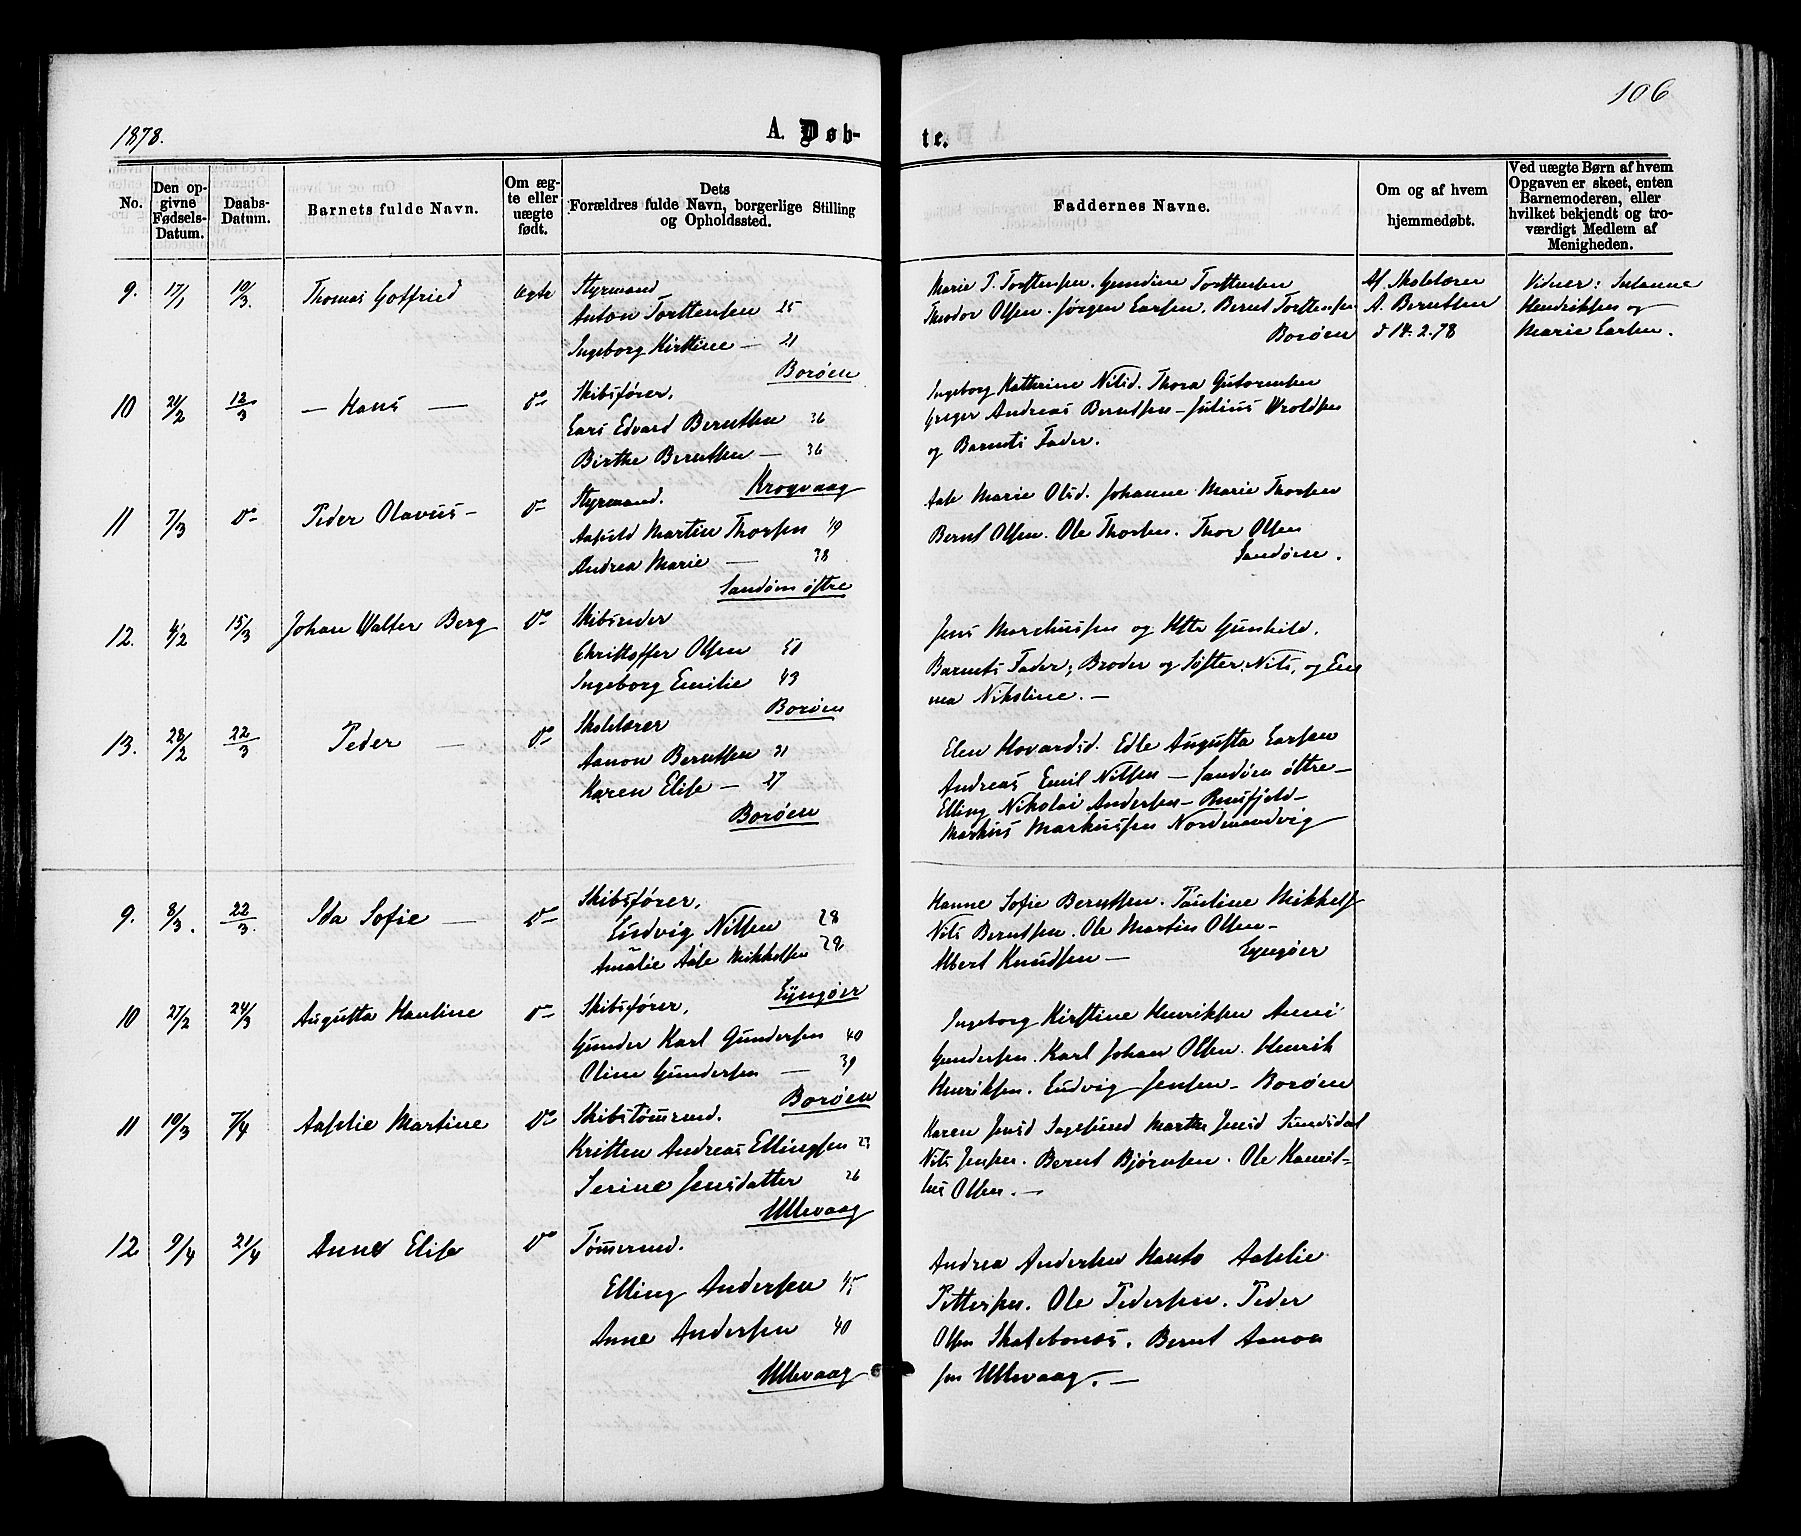 106
1878.
A. Døb-
te.
No.
Den op-
givne
Fødsels-
Datum.
Daabs-
Datum.
Barnets fulde Navn.
Om æg-
te eller
uægte
født.
Dets
Forældres fulde Navn, borgerlige Stilling
og Opholdssted.
Faddernes Navne.
Om og af hvem
hjemmedøbt.
Ved uægte Børn af hvem
Opgaven er skeet, enten
Barnemoderen, eller
hvilket bekjendt og tro-
værdigt Medlem af
Menigheden.
9. 17/1 10/3. Thomas Gotfried Ægte Styrmand
Anton Torstensen 25
Ingeborg Kirstine — 21
Borøen
Marie T. Torstensen. Gundine Torstensen
Theodor Olsen. Jørgen Larsen. Bernt Torstensen
Borøen
Af Skolelærer
A. Berntsen
d 14.2.78
Vidner: Susanne
Hendriksen og
Marie Larsen.
10 21/2 12/3 — Hans — do Skibsfører,
Lars Edvard Berntsen 36
Birthe Berntsen — 36
Krogvaag
Ingeborg Kathrine Nilsd. Thora Gutormsen
Greger Andreas Berntsen — Julius Wroldsen
og Barnets Fader.
11 7/3 do Peder Olavus — do Styrmand.
Aasuld Martin Thorsen 49
Andrea Marie — 38
Sandøen østre
Aase Marie Olsd. Johanne Marie Thorsen
Bernt Olsen. Ole Thorsen. Thor Olsen
Sandøen.
12. 4/2 15/3 Johan Walter Berg do Skibsreder
Christoffer Olsen 50
Ingeborg Emilie 43
Borøen
Jens Marchussen og Hst Gunhild.
Barnets Fader; Broder og Søster: Nils, og Em
ma Nikoline. —
13. 28/2 22/3 Peder — do Skolelærer
Aanon Berntsen 31
Karen Elise — 27
Borøen
Elen Hovardsd. Edle Augusta Larsen
Andreas Emil Nilsen — Sandøen østre —
Elling Nikolai Andersen — —
Markus Markussen Nordmandvig
9. 8/3. 22/3. Ida Sofie — do Skibsfører,
Ludvig Nilsen 28
Amalie Aase Mikkelsen 28
Lyngøer
Hanne Sofie Berntsen. Pauline Mikkels
Nils Berntsen. Ole Martin Olsen —
Albert Knudsen — Lyngøer
10 27/2 24/3 Augusta Hantine do Skibsfører,
Gunder Karl Gundersen 40
Oline Gundersen — 39
Borøen
Ingeborg Kirstine Henriksen Anne
Gundersen. Karl Johan Olsen. Henrik
Henriksen. Ludvig Jensen — Borøen
11 10/3 7/4 Aaslie Martine do Skibstømrmd.
Kristen Andreas Ellingsen 23
Serine Jensdatter 26
Ullevaag
Karen Jensd Sagesund Marthe Jensd Sundsdal
Nils Jensen. Bernt Bjørnsen. Ole Kamil-
lus Olsen. —
12 9/4 21/4 Anne Elise do Tømermd.
Elling Andersen 45
Anne Andersen 40
Ullevaag
Andrea Andersen Aaslie
Pettersen. Ole Pedersen. Peder
Olsen Skatebonæs. Bernt Aanon
sen Ullevaag. —